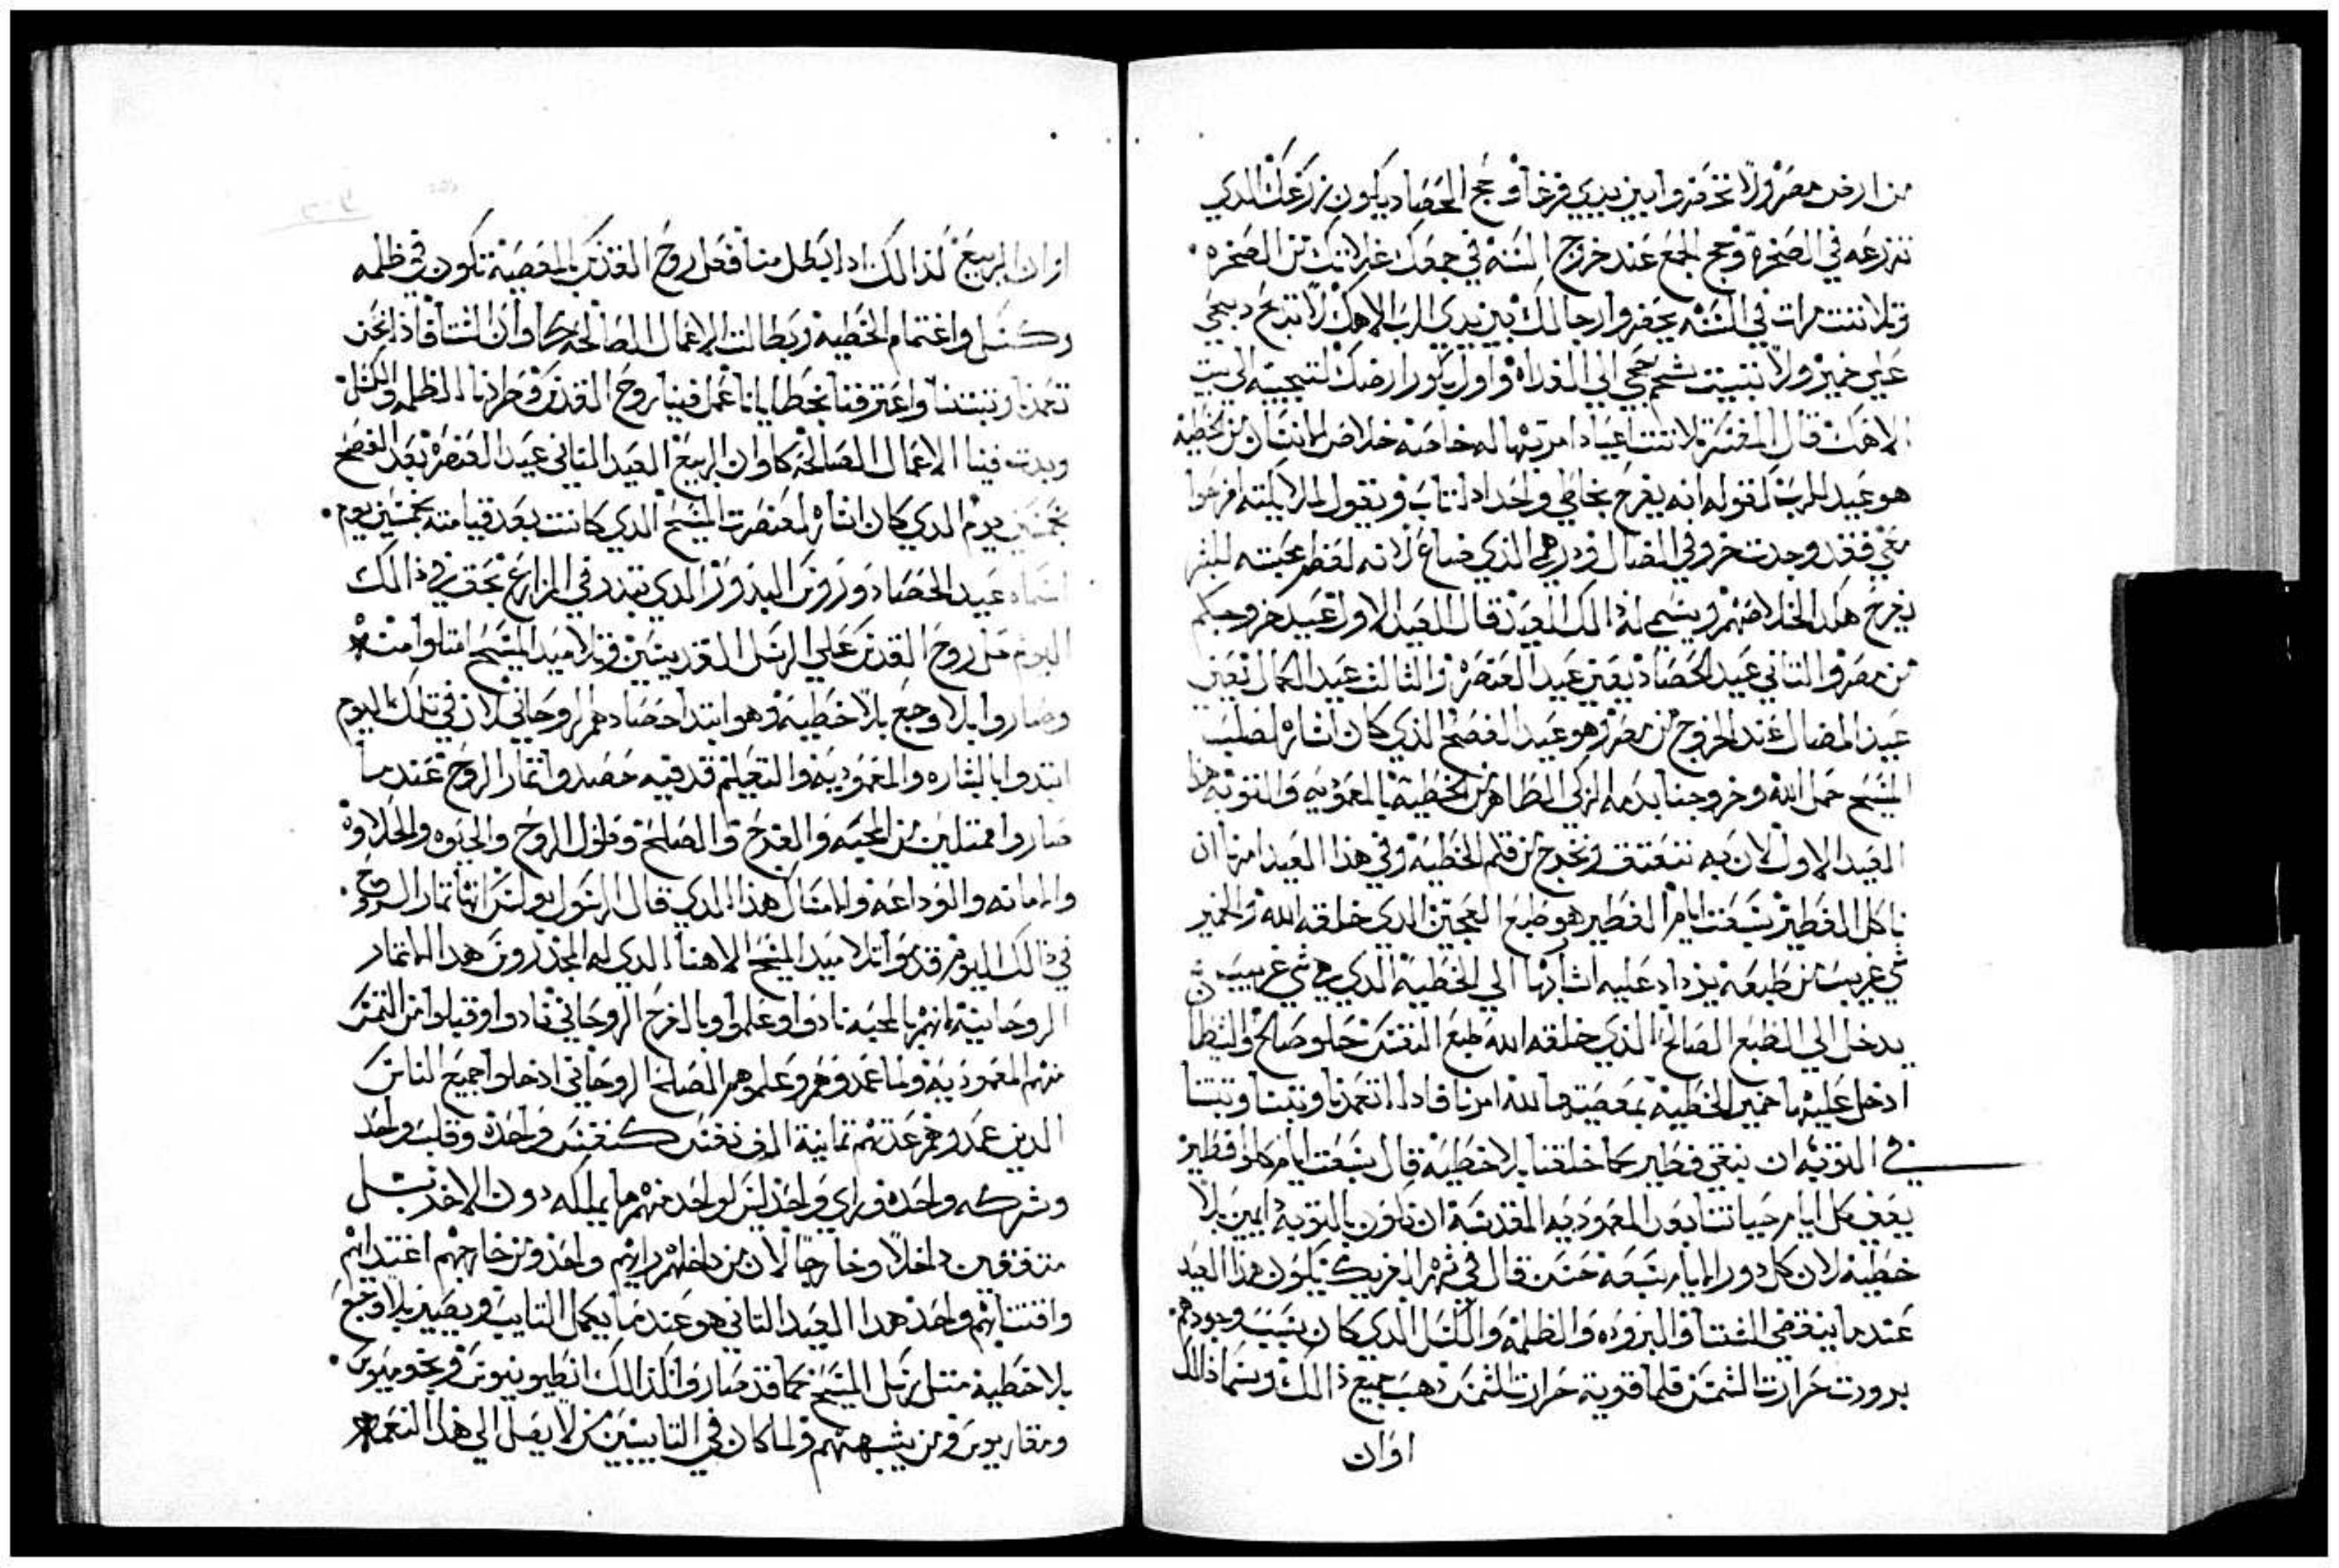 من ارض مصر ولا تحضروا بين يدي فرغا وحج الحصاد يكون زرعك الدي
تزرعه في الصخره وحج الجمع عند خروج السنه في جمعك غلاتك من الصخره
وتلاتت مرات في السنه يحضروا رجالك بين يدي الرب الاهك لا تدبح دبحي
علي خمير ولا تتبيت شحم حجي الي الغداه واول بكور ارضك لتجيبه الي بيت
الاهك قال المفسر تلاتت اعياد امر بها له خاصه خلاص الانسان من الخطيه
هو عيد للرب لقوله انه يفرح بخاطي واحد ادا تاب ويقول لملايكته افرحوا
معي فقد وجدت خروفي الضال ودرهمي الذي ضاع لانه لعظم محبته للبشر
يفرح هكدا لخلاصهم ويسمي له ذالك العيد قال العيد الاول عيد خروجكم
من مصر والتاني عيد الحصاد يعني عيد العنصره والتالت عيد الكمال يعني
عيد المضال عند الخروج من مصر وهو عيد الفصح الذي كان اشاره لصلب
المسيح حمل الله وخروجنا بدمه الزكي الطاهر من الخطيه بالمعموديه والتوبه هدا
العيد الاول لان به ننعتق ونخرج من قلم الخطيه وفي هذا العيد امرنا ان
ناكل الفطير سبعت ايام الفطير هو طبع العجين الدي خلقه الله والخمير
شي غريب من طبعه يزداد عليه اشار بها الي الخطيه الدي هي شي غريب
يدخل الي الطبع الصالح الذي خلقه الله طبع النفس حلو صالح والشيطان
ادخل عليها خمير الخطيه بمعصيتها لله امرنا فادا اتعمدنا وتبنا وتبتنا
في التوبه ان نبقي فطير كما خلقنا بلا خطيه قال سبعت ايام كلوا فطير
يعني كل ايام حياتنا بعد المعموديه المقدسه ان نكون بالتوبه دايمين بلا
خطيه لان كل دور الايام سبعه حسن قال في شهر الفريك يكون هدا العيد
عندما ينقضي الشتا والبروده والظلمه والكسل الدي كان بسبب وجودهم
برودت حرارت الشمس فلما قويه حرارت الشمس دهب جميع ذالك ويسما ذالك
اوان
اوان الربيع لذالك ادا بطل منا فعل روح القدس بالمعصيه نكون في ظلمه
وكسل واغتمام الخطيه وبطالت الاعمال الصالحه كاوان الشتا فاذا نحن
تعمدنا وتبتنا واعترفنا بخطايانا عمل فينا روح القدس وطرد منا الظلمه والكسل
وبدت فينا الاعمال الصالحه كاوان الربيع العيد التاني عيد العنصره بعد الفصح
بخمسين يوم الدي كان اشاره لعنصرت المسيح الدي كانت بعد قيامته بخمسين يوم
اسماه عيد الحصاد وروس البدور الدي تبدر في المزارع بحق في ذالك
اليوم حل روح القدس علي الرسل القديسين وتلاميد المسيح امتلوا منه
وصاروا بلا وجع بلا خطيه وهو ابتدا حصادهم الروحاني لان في تلك اليوم
ابتدوا بالبشاره والمعموديه والتعليم قد فيه حصدوا تمار الروح عندما
صاروا ممتلين من المحبه والفرح والصلح وطول الروح والخيوه والحلاوه
والامانه والوداعه والامساك هذا الدي قال الرسول بولس انها تمار الروح
في ذالك اليوم قدموا تلاميد المسيح الاهنا الدي له المجد روس هدا الاتمار
الروحانيه انهم بالمحبه نادوا وعلموا وبالفرح الروحاني نادوا وقبلوا من التمس
منهم المعموديه ولما عمدوهم وعلموهم الصلح الروحاني ادخلوا جميع الناس
الدين عمدوهم عدتهم تمانية الف نفس كنفس واحده وقلب واحد
وشركه واحده وراي واحد ليس لواحد منهم ما يملكه دون الاخر بل
متفقين داخلا وخارجا لان من داخلهم رايهم واحد ومن خارجهم اغتدايهم
واقتنايهم واحد هدا العيد التاني هو عندما يكمل التايب ويصير بلا وجع
بلا خطيه متل رسل المسيح كما قد صار وا كذالك انطيونيوس وبخوميوس
ومقاريوس ومن يشبههم ولما كان في التايبين من لا يصل الي هذا النعمه